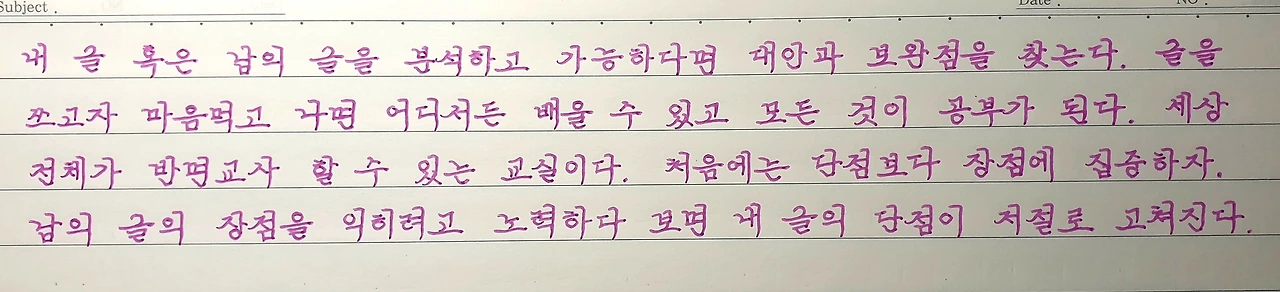 Subject .
Date .
NO .
내 글 혹은 남의 글을 분석하고 가능하다면 대안과 보완점을 찾는다. 글을
쓰고자 마음먹고 나면 어디서든 배울 수 있고 모든 것이 공부가 된다. 세상
전체가 반면교사 할 수 있는 교실이다. 처음에는 단점보다 장점에 집중하자.
남의 글의 장점을 익히려고 노력하다 보면 내 글의 단점이 저절로 고쳐진다.